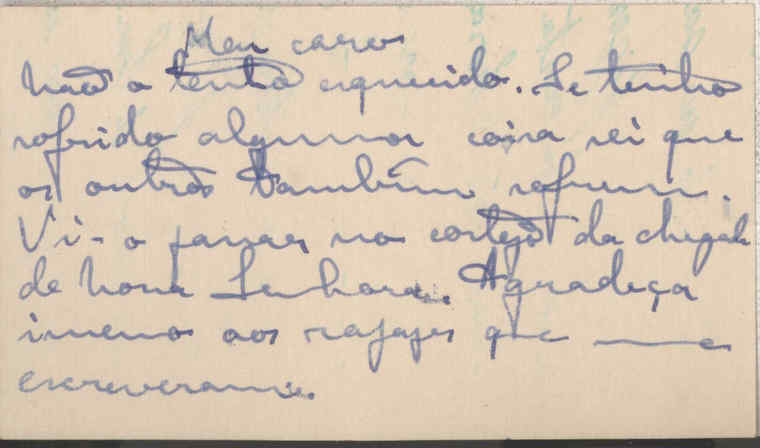 Meu caro
Não o tenho esquecido. Se tenho
sofrido alguma coisa sei que
os outros também sofrem.
Vi-o passar no cortejo da chegada
de Nossa Senhora. Agradeça
imenso aos rapazes que me
escreveram.